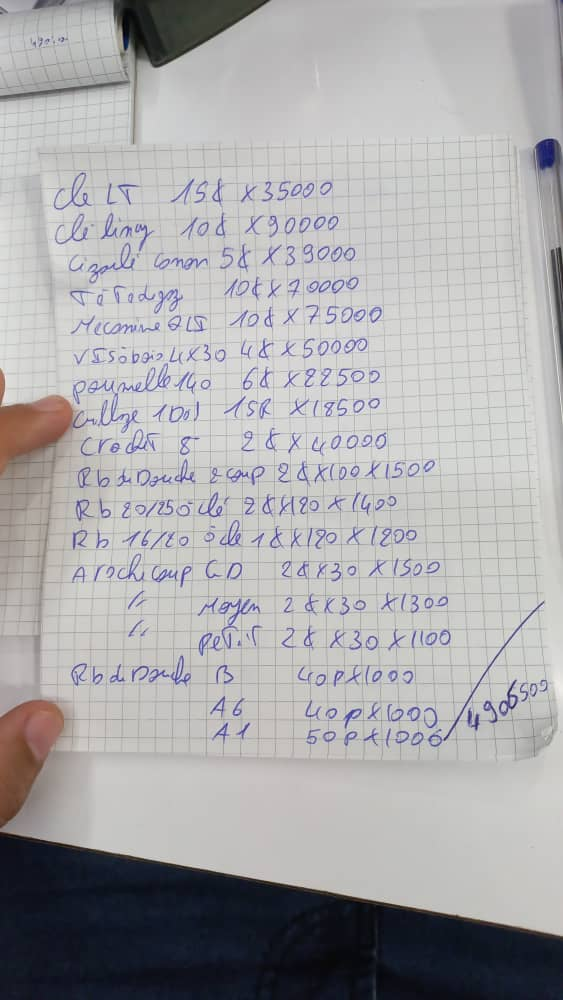 Cle LT 15& X35000
Clé lincy 10& X90000
Cizaile conon 5& X39000
10& X70000
Mecanine 2LT 10& X75000
VIS ò bois 4X30 4& X50000
paumelle 140 6& X22500
1001 15R X18500
Crochet 8 2& X40000
Rb de Douche 2 coup 2& X100 X1500
Rb 20/25 ò clé 2& X120 X1400
Rb 16/20 ò cle 1& X120 X1200
Arache coup GD 2& X30 X1500
〃 Moyen 2& X30 X1300
〃 petit 2& X30 X1100
Rb de Douche B 40p X1000
A6 40p X1000
A1 50p X1000
4906500